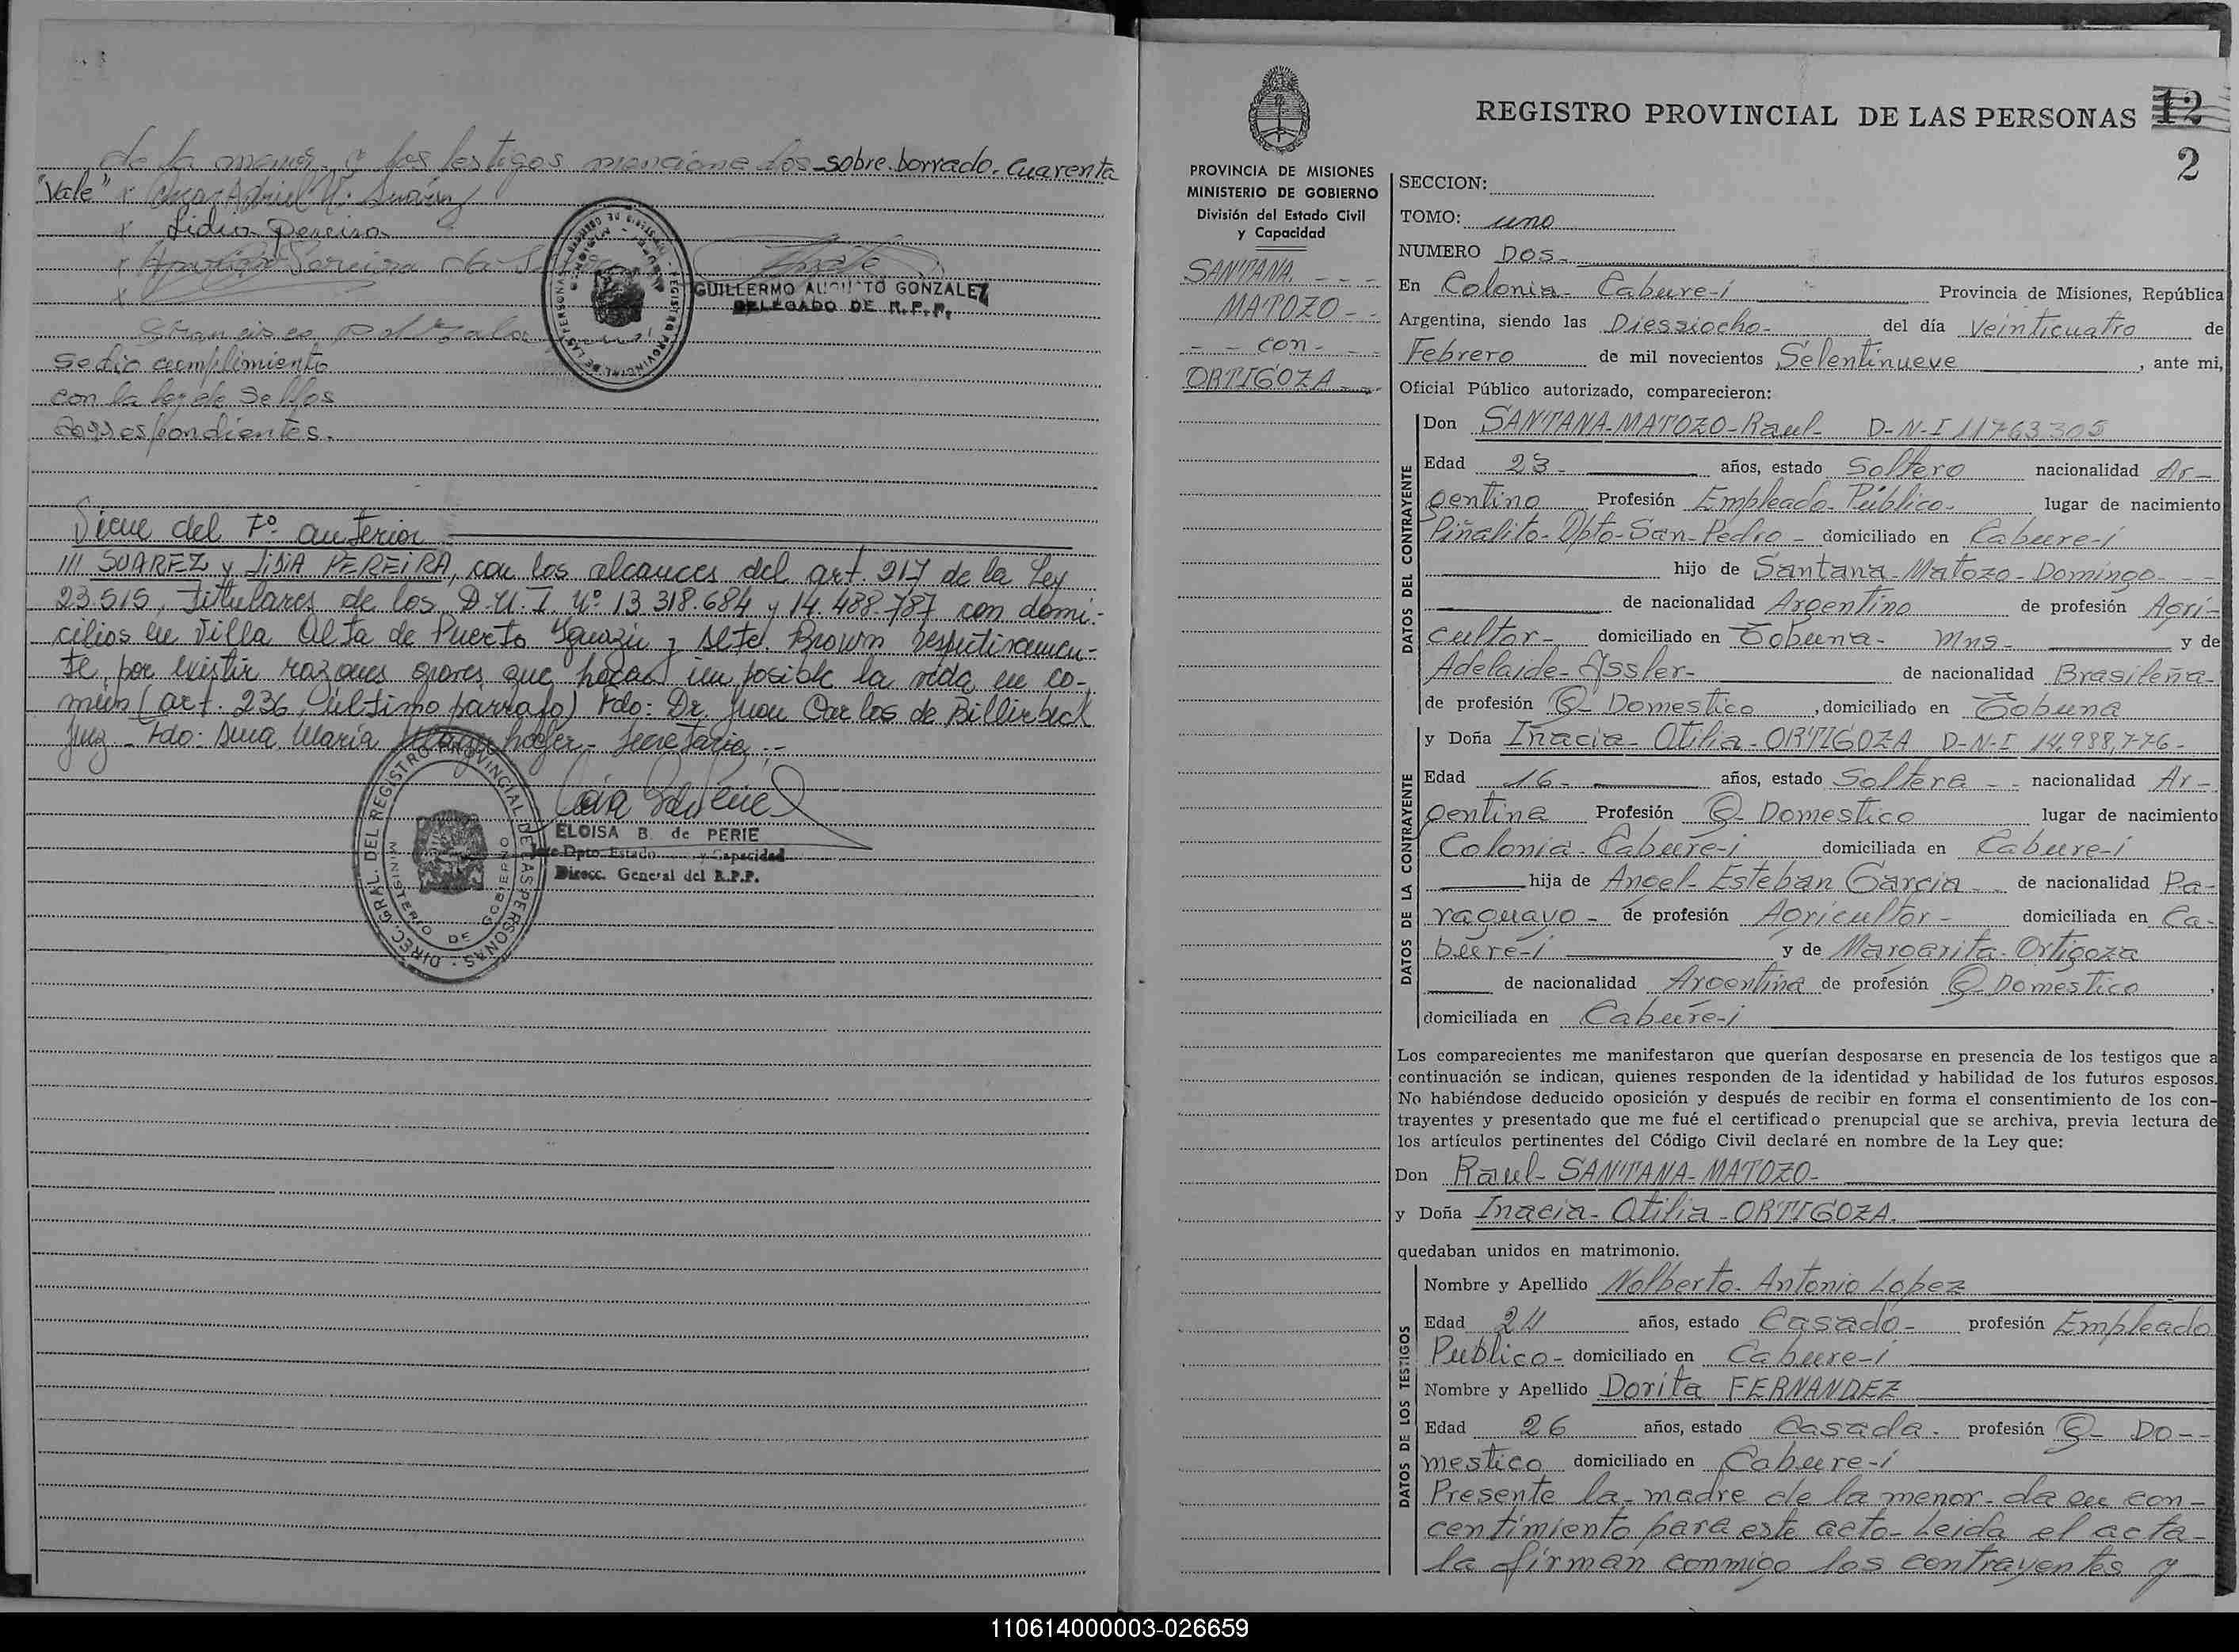 de la menor y los testigos mencionados - sobre borrado. Cuarenta
"Vale"
Lidia Pereira
GUILLERMO AUGUSTO GONZALEZ
DELEGADO DE R.P.P.
Se dio cumplimiento
con la ley de Sellos
Correspondientes.
Sigue del Fº anterior
/// SUAREZ y LIDIA PEREIRA, con los alcances del art. 217 de la Ley
23.515, Titulares de los D.N.I. Nº 13.318.684 y 14.488.787 con domi-
cilios en Villa Alta de Puerto Iguazú y Alte. Brown respectivamen-
te, por existir razones graves que hacen imposible la vida en co-
mún (art. 236, último párrafo) Fdo: Dr. Juan Carlos de
Juez - Fdo: Ana María - Secretaria.-
ELOISA B. de PERIE
Jefe Dpto. Estado y Capacidad
Direcc. General del R.P.P.
DIREC. GRAL. DEL REGISTRO PROVINCIAL DE LAS PERSONAS
MINISTERIO DE GOBIERNO
REGISTRO PROVINCIAL DE LAS PERSONAS
12
2
PROVINCIA DE MISIONES
MINISTERIO DE GOBIERNO
División del Estado Civil
y Capacidad
SANTANA. - - -
MATOZO - -
- - con - - -
ORTIGOZA - -
SECCION:
TOMO: uno
NUMERO DOS-
En Colonia - Cabure-í Provincia de Misiones, República
Argentina, siendo las Diessiocho- del día Veinticuatro de
Febrero de mil novecientos Setentinueve, ante mi,
Oficial Público autorizado, comparecieron:
DATOS DEL CONTRAYENTE
Don SANTANA-MATOZO-Raul- D-N-I 11763305
Edad 23- años, estado Soltero nacionalidad Ar-
gentino Profesión Empleado-Público- lugar de nacimiento
Piñalito-Dpto-San-Pedro- domiciliado en Cabure-í
hijo de Santana-Matozo-Domingo- - -
de nacionalidad Argentino de profesión Agri-
cultor- domiciliado en Tobuna- Mns- y de
Adelaide-Assler- de nacionalidad Brasileña-
de profesión Q- Domestico, domiciliado en Tobuna
DATOS DE LA CONTRAYENTE
y Doña Inacia- Otilia-ORTIGOZA D-N-I 14,988,776-
Edad 16- años, estado Soltera - - nacionalidad Ar-
gentina Profesión Q- Domestico lugar de nacimiento
Colonia-Cabure-í domiciliada en Cabure-í
hija de Angel-Esteban Garcia - - de nacionalidad Pa-
raguayo- de profesión Agricultor- domiciliada en Ca-
bure-í y de Margarita-Ortigoza
de nacionalidad Argentina de profesión Q Domestico,
domiciliada en Cabure-í
Los comparecientes me manifestaron que querían desposarse en presencia de los testigos que a
continuación se indican, quienes responden de la identidad y habilidad de los futuros esposos.
No habiéndose deducido oposición y después de recibir en forma el consentimiento de los con-
trayentes y presentado que me fué el certificado prenupcial que se archiva, previa lectura de
los artículos pertinentes del Código Civil declaré en nombre de la Ley que:
Don Raul- SANTANA-MATOZO-
y Doña Inacia- Otilia-ORTIGOZA.
quedaban unidos en matrimonio.
DATOS DE LOS TESTIGOS
Nombre y Apellido Nolberto-Antonio Lopez
Edad 24 años, estado Casado- profesión Empleado
Publico- domiciliado en Cabure-í
Nombre y Apellido Dorita FERNANDEZ
Edad 26 años, estado Casada. profesión Q- Do--
mestico domiciliado en Cabure-í
Presente la-madre de la menor-da su con-
centimiento para este acto-Leida el acta-
la firman conmigo los contrayentes y
110614000003-026659